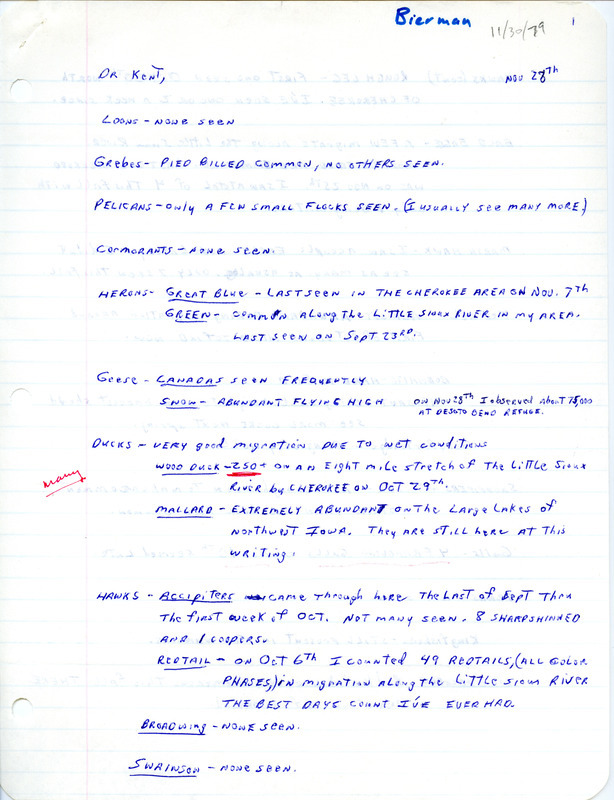 Bierman
11/30/79
1
Dr Kent,
Nov 28th
Loons - none seen
Grebes - Pied billed common, no others seen.
Pelicans - only a few small flocks seen. (I usually see many more)
Cormorants - none seen.
Herons - Great Blue - last seen in the Cherokee area on Nov. 7th
Green - common along the Little Sioux River in my area.
last seen on Sept 23rd.
Geese - Canadas seen frequently
Snow - abundant flying high
on Nov 28th I observed about 75,000
at DeSoto Bend Refuge.
Ducks - very good migration due to wet conditions
Wood Duck - 250+ on an eight mile stretch of the Little Sioux
many
River by Cherokee on Oct 29th.
Mallard - extremely abundant on the large lakes of
northwest Iowa. They are still here at this
writing.
Hawks - Accipiters came through here the last of Sept thru
the first week of Oct. not many seen. 8 sharpshinned
and 1 coopers.
Redtail - on Oct 6th I counted 49 redtails, (all color
phases,) in migration along the Little Sioux River
the best days count I've ever had.
Broadwing - none seen.
Swainson - none seen.